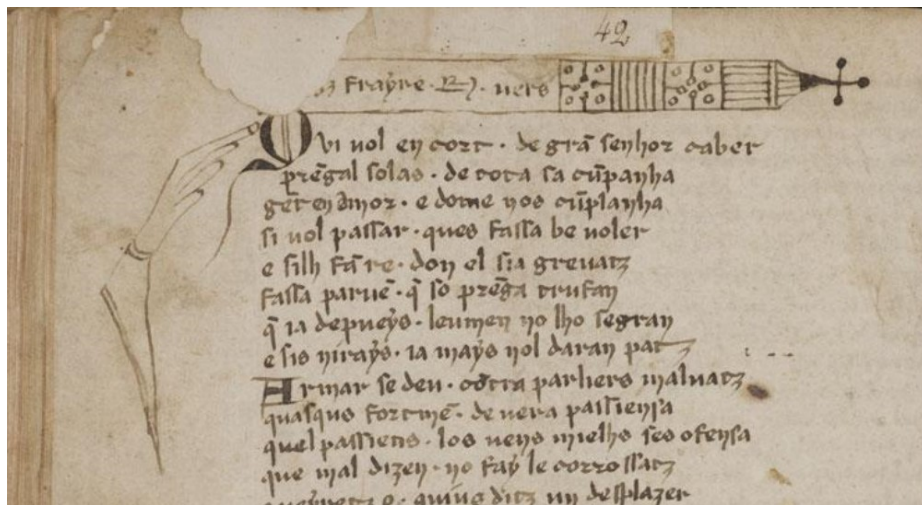 42
frayre · R · vers
Qvi uol en cort · de grã senhor caber
prẽgal solas · de tota sa cũpanha
gẽt en amor · e dome nos cũplanha
si uol passar · ques fassa be uoler
e silh fã re · don el sia greuatz
fassa paruẽ · q̃ so prẽga trufan
q̃ ia depueys · leumen no lho segran
e sis nirays · ia mays nol daran patz
Armar se deu · cõtra parliers maluatz
quasqus fortmẽ · de uera passiensa
quel passiens · los uens mielhs ses ofensa
que mal dizen · no fay le corrossatz
ditz un desplazer